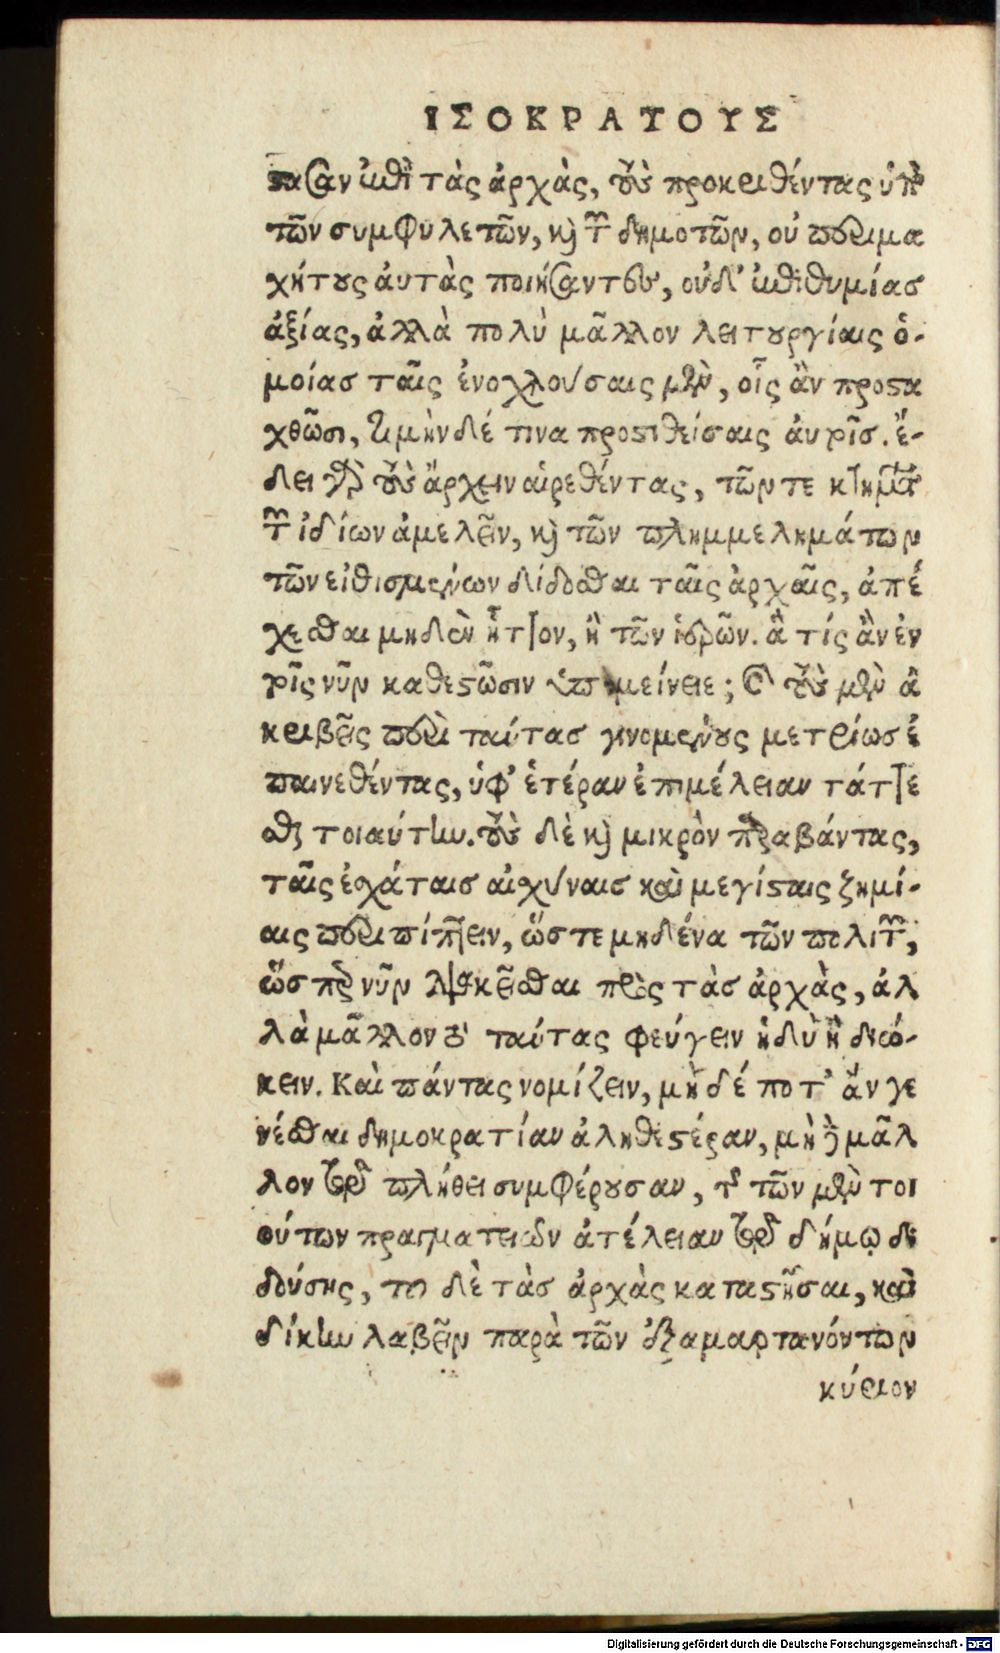 ΙΣΟΚΡΑΤΟΥΣ
στασαν ἐπὶ τὰς ἀρχὰς, τοὺς προκριθέντας ὑπὸ
τῶν συμφυλετῶν, καὶ τῶν δημοτῶν, οὐ περιμα
χήτους αὐτὰς ποιήσαντες, οὐδ' ἐπιθυμίας
ἀξίας, ἀλλὰ πολὺ μᾶλλον λειτουργίαις ὁ-
μοίας ταῖς ἐνοχλούσαις μὲν, οἷς ἂν προστα
χθῶσι, τιμὴν δέ τινα προστιθείσαις αὐτοῖς. ἔ-
δει γὰρ τοὺς ἄρχειν αἱρεθέντας, τῶν τε κτημάτων
τῶν ἰδίων ἀμελεῖν, καὶ τῶν πλημμελημάτων
τῶν εἰθισμένων δίδοσθαι ταῖς ἀρχαῖς, ἀπέ
χεσθαι μηδὲν ἧττον, ἢ τῶν ἱερῶν. ἃ τίς ἂν ἐν
τοῖς νῦν καθεστῶσιν ὑπομείνειε; καὶ τοὺς μὲν ἀ
κριβεῖς περὶ ταύτας γινομένους μετρίως ἐ
παινεθέντας, ὑφ' ἑτέραν ἐπιμέλειαν τάττε
σθαι τοιαύτην. τοὺς δὲ καὶ μικρὸν παραβάντας,
ταῖς ἐσχάταις αἰσχύναις καὶ μεγίσταις ζημί-
αις περιπίπτειν, ὥστε μηδένα τῶν πολιτῶν,
ὥσπερ νῦν διακεῖσθαι πρὸς τὰς ἀρχὰς, ἀλ
λὰ μᾶλλον τότε ταύτας φεύγειν ἢ νῦν διώ-
κειν. Καὶ πάντας νομίζειν, μὴ δέ ποτ' ἂν γε
νέσθαι δημοκρατίαν ἀληθεστέραν, μὴ δὲ μᾶλ
λον τῷ πλήθει συμφέρουσαν, τῆς τῶν μὲν τοι
ούτων πραγματειῶν ἀτέλειαν τῷ δήμῳ δι
δούσης, τοῦ δὲ τὰς ἀρχὰς καταστῆσαι, καὶ
δίκην λαβεῖν παρὰ τῶν ἐξαμαρτανόντων
κύριον
Digitalisierung gefördert durch die Deutsche Forschungsgemeinschaft - DFG